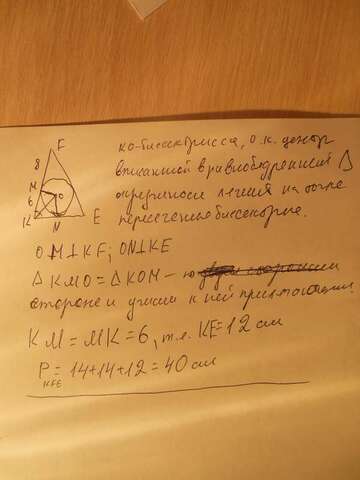 F
8
M
6
O
K
N
E
KO-биссектрисса, о.к. центр
вписанной в равнобедренный Δ
окружности лежит на точке
пересечения биссектрис.
OM⊥KF; ON⊥KE
ΔKMO = ΔKON - по
стороне и углам к ней прилежащим
KM = MK = 6, т.е. KE = 12 см
P = 14+14+12 = 40 см
KFE